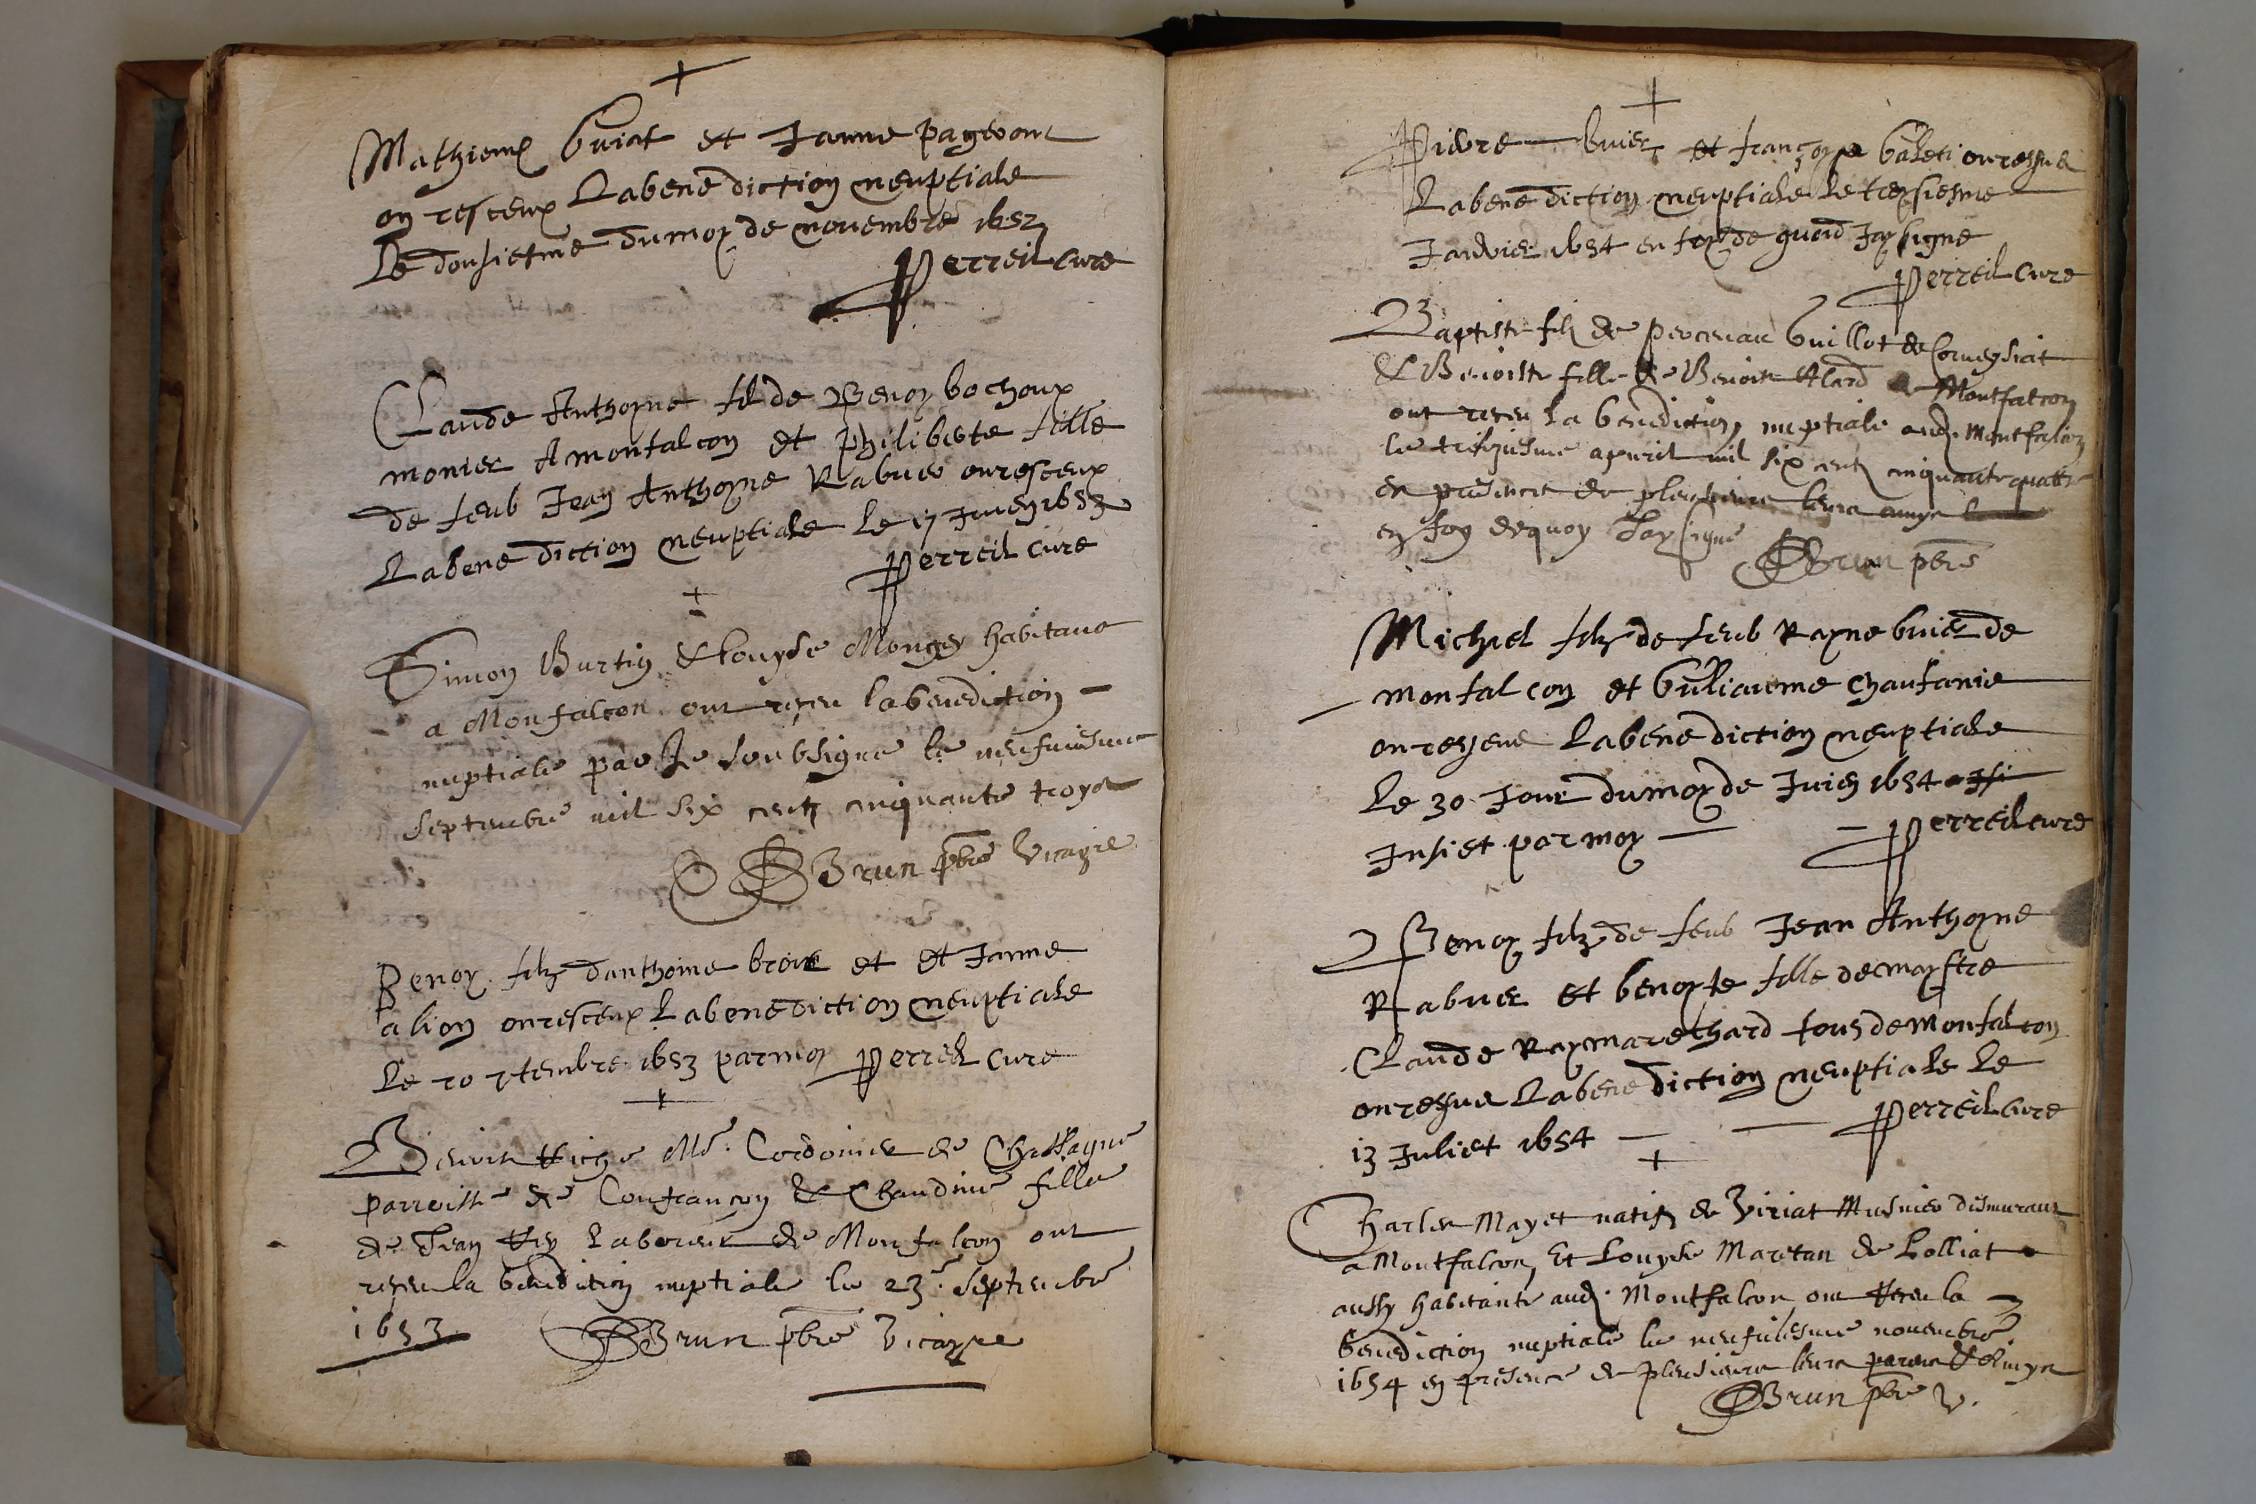 Mathieux buiat et Janne pageout
on resceux Labenediction neuptiale
Le dousiesme dumoy de novembre 1652
Perreil cure
Claude Anthoyne fil de Benoy bochoux
monier A montalcon et philiberte fille
de feub Jean Anthoyne Rabuer onresceux
Labenediction neuptiale Le 17 Juien 1653
Perreil cure
Simon Burtin & Louyse Monger habitans
a Monfalcon ont reçeu labenediction
nuptiale par Je soubsigné le neufuiesme
septembre mil six centz cinquante troys
Brun pbre Vicayre
Benoy filz danthoine brove et et Janne
alion onresceux Labenediction neuptiale
Le 10 7tembre 1653 parmoy Perreil cure
Benoist Me. Cordonier de Chassagne
parroisse de Confrançon & Claudine fille
de Jean Rey Laboreur de Monfalcon ont
reçeu la benedition nuptiale le 23e. septembre
1653 Brun pbre Vicayre
Pierre buier et françoyse baleti onressue
Labenediction neuptiale le treysiesme
Janvier 1654 en foy de quoid Jay signe
Perreil cure
Baptiste filz de Guillot de Corveysiat
& Benoiste fille de Benoist Alard de Montfalcon
ont reçeu la benediction nuptiale aud. Montfalcon
le apvril mil six centz cinquante quattre
en presence de plusieurs leurs amys
en foy dequoy Jay signé
Brun pbre
Michiel filz de feub Rayne buier de
montalcon et Guliaume chanfanie
onresseue Labenediction neuptiale
Le 30 Jour dumoy de Juien 1654
Insiet parmoy Perreil cure
Benoy filz de feub Jean Anthoyne
Rabuer et benoyte fille demaystre
Claude Raymarethard tous de monfalcon
onressue Labenediction neuptiale Le
13 Juliet 1654 Perreil cure
Charles Mayet natifz de Viriat Musnier demurant
a Montfalcon, Et Louyse Martan de Polliat
aussy habitante aud. Montfalcon ont reçeu la
benediction nuptiale le neufuiesme novembre
1654 en presence de plusieurs leurs parens & amys
Brun pbre V.